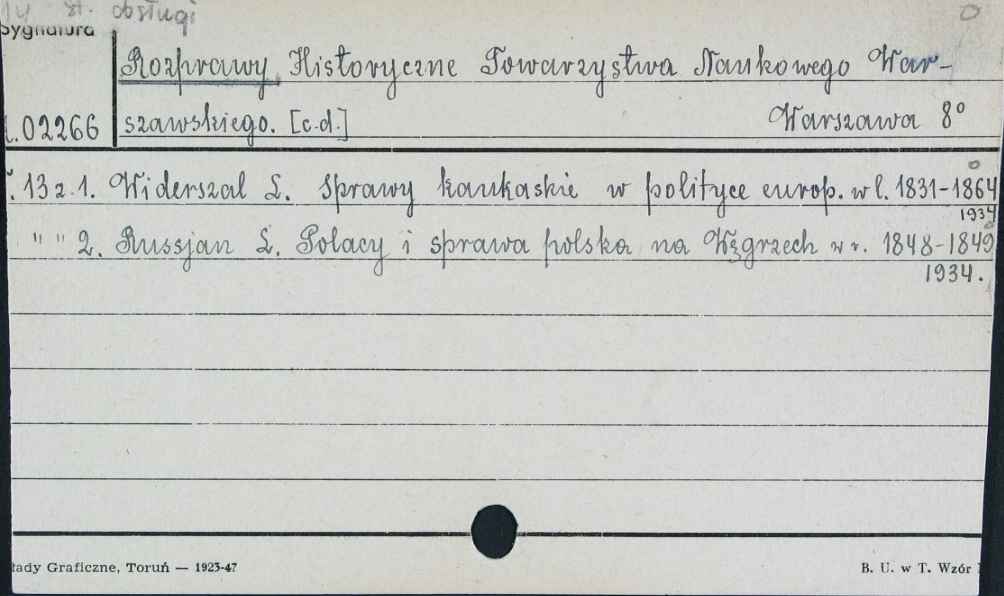 st. obsługi
Sygnatura
Rozprawy Historyczne Towarzystwa Naukowego War-
.02266 szawskiego. [c.d.] Warszawa 8°
. 13 z. 1. Widerszal L. Sprawy kaukaskie w polityce europ. w l. 1831-1864
1934
" " 2. Russjan L. Polacy i sprawa polska na Węgrzech w r. 1848-1849
1934.
ady Graficzne, Toruń — 1923-47 B. U. w T. Wzór